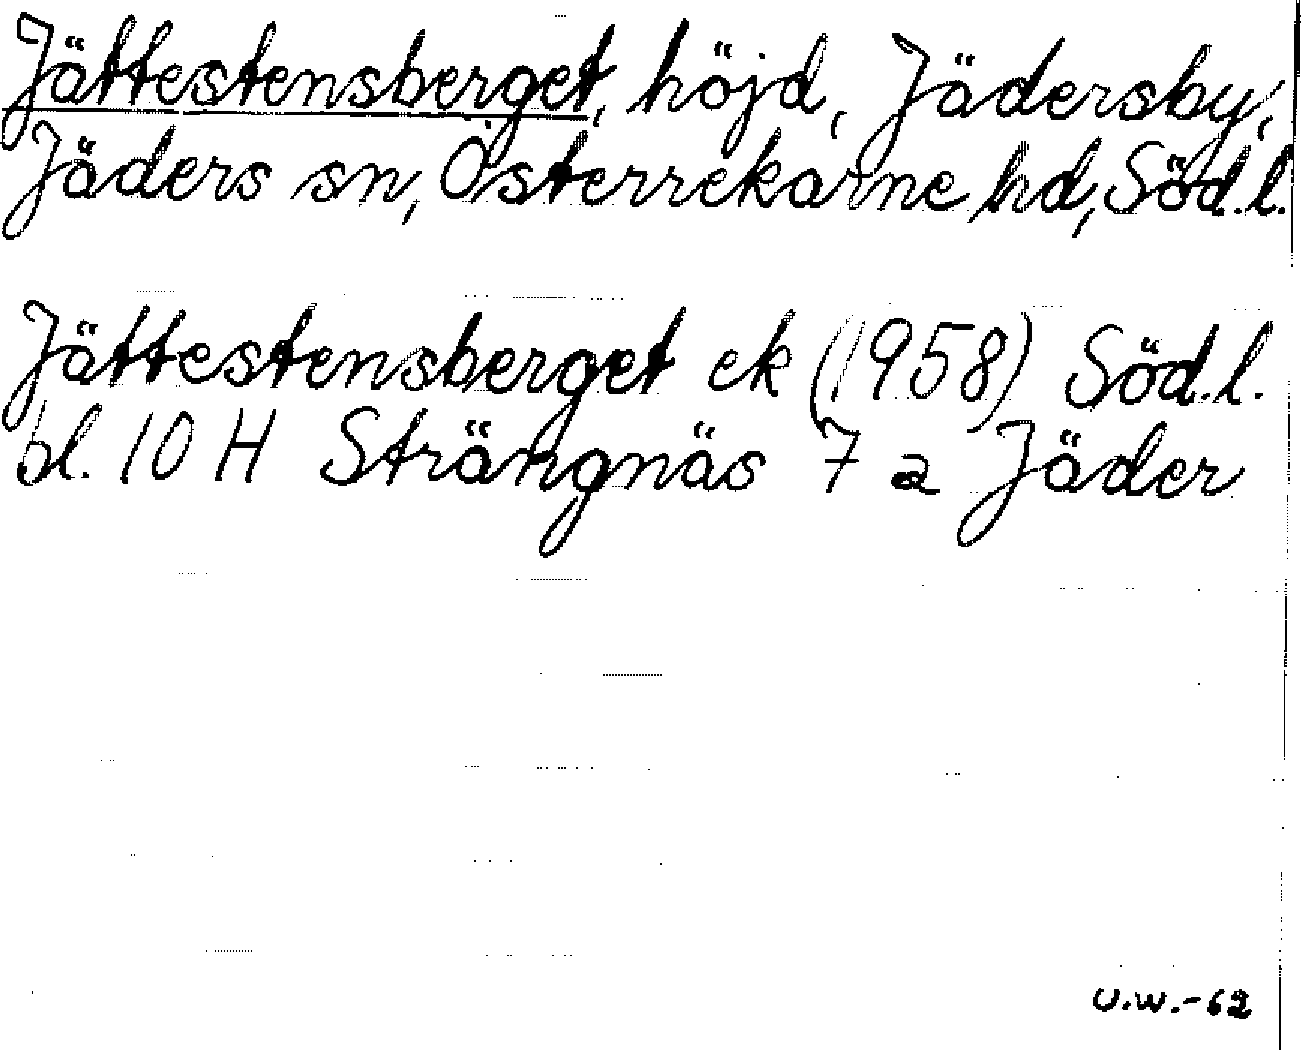 Jättestensberget, höjd, Jädersby,
Jäders sn, Österrekarne hd, Söd.l.
Jättestensberget ek (1958) Söd.l.
bl. 10 H Strängnäs 7 a Jäder
U.W.-62